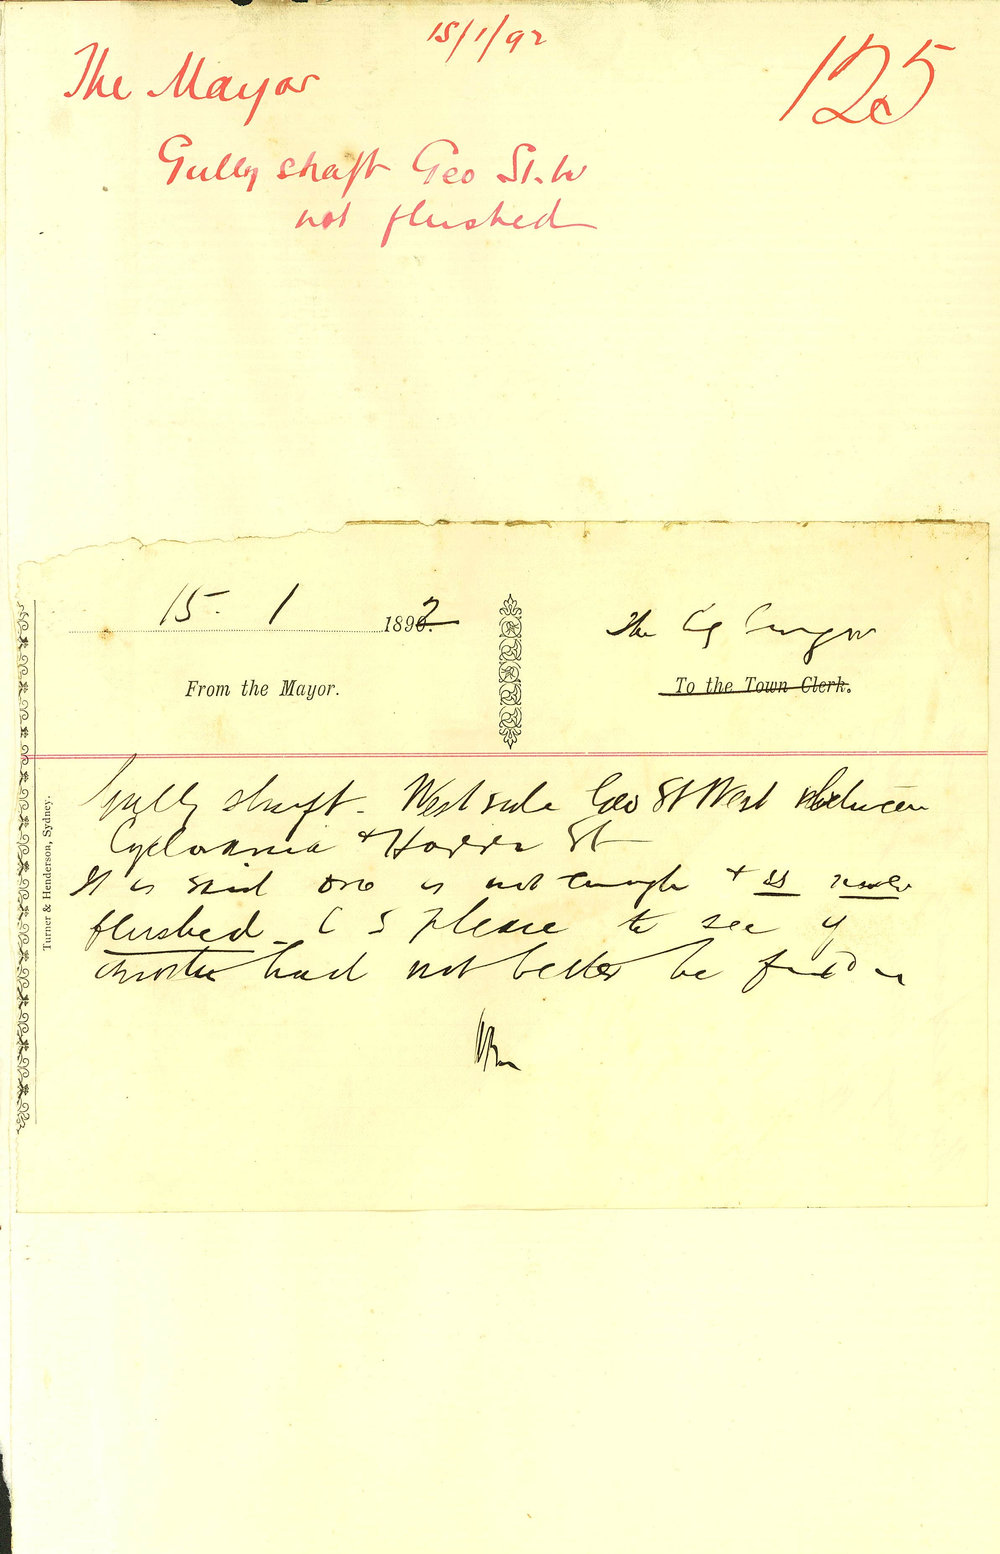 15/1/92
The Mayor
125
Gully shaft Geo St. W
not flushed
15. 1 1892
From the Mayor.
The Cy Surveyor
To the Town Clerk.
Turner & Henderson, Sydney.
Gully shaft. West side Geo St West between
& Harris St
It is said one is not enough & is never
flushed. C S please to see if
another had not better be fixed